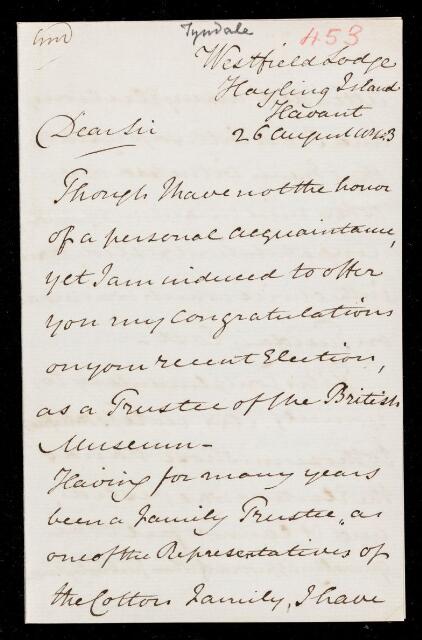 Tyndale
453
Westfield Lodge
Hayling Island
Havant
26 August 1843
Dear Sir
Though I have not the honor
of a personal acquaintance,
yet I am induced to offer
you my Congratulations
on your recent Election,
as a Trustee of the British
Museum -
Having for many years
been a Family Trustee, as
one of the Representatives of
the Cotton Family, I have